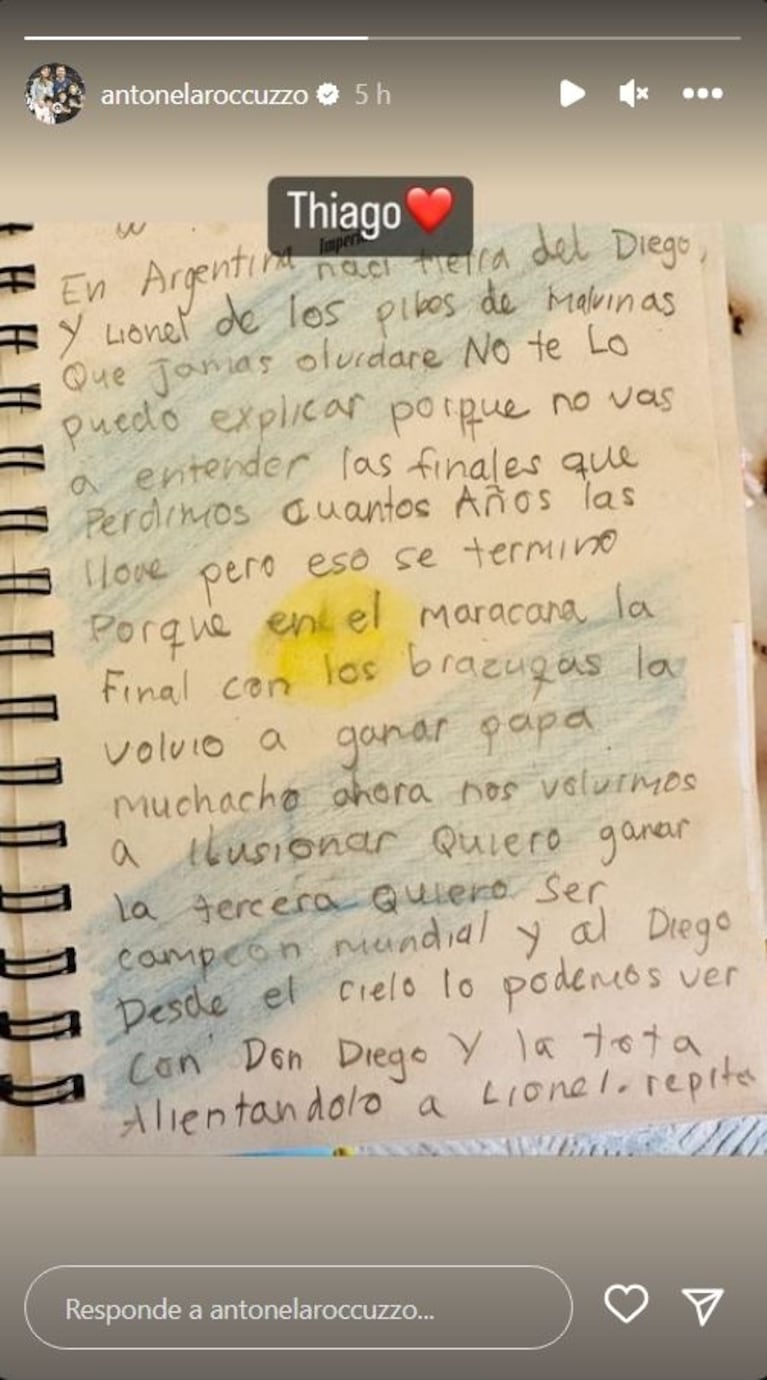 antonelaroccuzzo 5 h
Thiago❤️
En Argentina naci tierra del Diego,
y Lionel de los pibes de Malvinas
Que Jamas olvidare No te Lo
puedo explicar porque no vas
a entender las finales que
Perdimos cuantos Años las
llore pero eso se termino
Porque en el maracana la
Final con los brazugas la
volvio a ganar papa
muchacho ahora nos volvimos
a Ilusionar Quiero ganar
la tercera Quiero Ser
campeon mundial y al Diego
Desde el cielo lo podemos ver
Con Don Diego Y la tota
Alientandolo a Lionel. repita
Responde a antonelaroccuzzo...